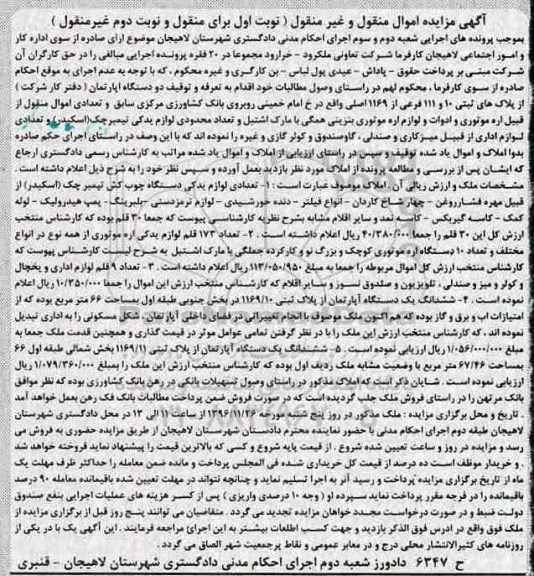 آگهی مزایده اموال منقول و غیر منقول ( نوبت اول برای منقول و نوبت دوم غیرمنقول )
بموجب پرونده های اجرایی شعبه دوم و سوم اجرای احکام مدنی دادگستری شهرستان لاهیجان موضوع آرای صادره از سوی اداره کار
و امور اجتماعی لاهیجان کارفرما شرکت تعاونی ملکرود - خرارود مجموعا در ۲۰ فقره پرونده اجرایی مبالغی را در حق کارگران آن
شرکت مبنی بر پرداخت حقوق - پاداش - عیدی پول لباس - بن کارگری و غیره محکوم ، که با توجه به عدم اجرای به موقع احکام
صادره از سوی کارفرما ، محکوم لهم در راستای وصول مطالبات خود اقدام به تعرفه و توقیف دو دستگاه آپارتمان ( دفتر کار شرکت )
از پلاک های ثبتی ۱۰ و ۱۱۱ فرعی از ۱۱۶۹ اصلی واقع در خ امام خمینی روبروی بانک کشاورزی مرکزی سابق و تعدادی اموال منقول از
قبیل اره موتوری و ادوات و لوازم اره موتوری بنزینی همگی با مارک اشتیل و تعداد محدودی لوازم یدکی تیلمبر چک (اسکیدر) و تعدادی
لوازم اداری از قبیل میزکاری و صندلی ، گاوصندوق و کولر گازی و غیره را نموده اند که با این وصف در راستای اجرای حکم صادره
بدوا املاک و اموال یاد شده توقیف و سپس در راستای ارزیابی از املاک و اموال یاد شده مراتب به کارشناس رسمی دادگستری ارجاع
که ایشان پس از بررسی و مطالعه پرونده از املاک مورد نظر بازدید بعمل آورده و سپس نظر خود را به شرح ذیل اعلام داشته است .
مشخصات ملک و ارزش ریالی آن . املاک موصوف عبارت است : ۱- تعدادی لوازم یدکی دستگاه چوب کش تیمبر چک (اسکیدر) از
قبیل مهره فشارروغن - چهار شاخ کاردان - انواع فیلتر - دنده خورشیدی - لوازم ترمزدستی - بلبرینگ - پمپ هیدرولیک - لوله
کمک - کاسه گیربکس - کاسه نمد و سایر اقلام مشابه بشرح نظریه کارشناسی پیوست که جمعا ۳۰ قلم بوده که کارشناس منتخب
ارزش کل این ۳۰ قلم را جمعا ۴۰/۳۸۰/۰۰۰ ریال اعلام داشته است . ۲- تعداد ۱۷۳ قلم لوازم یدکی اره موتوری از همه نوع در انواع
مختلف و تعداد ۱۰ دستگاه اره موتوری کوچک و بزرگ نو و کارکرده جملگی با مارک اشتیل به شرح لیست کارشناس پیوست که
کارشناس منتخب ارزش کل اموال مربوطه را جمعا به مبلغ ۱۱۳/۰۵۰/۹۵۰ ریال اعلام داشته است . ۳- تعداد ۹ قلم لوازم اداری و یخچال
و کولر و میز و صندلی ، تلویزیون و صندوق نسوز و سایر اقلام که کارشناس منتخب ارزش این اموال را جمعا ۱۰/۳۵۰/۰۰۰ ریال اعلام
نموده است . ۴- ششدانگ یک دستگاه آپارتمان از پلاک ثبتی ۱۱۶۹/۱۰ در بخش جنوبی طبقه اول بمساحت ۶۶ متر مربع بوده که از
امتیازات آب و برق و گاز بوده که هم اکنون ملک موصوف با انجام تغییراتی در فضای داخلی آپارتمان ، شکل مسکونی را به اداری تبدیل
نموده اند ، که کارشناس منتخب ارزش این ملک را با در نظر گرفتن تمامی عوامل موثر در قیمت گذاری و همچنین قدمت ملک جمعا به
مبلغ ۱/۰۵۶/۰۰۰/۰۰۰ ریال ارزیابی نموده است . ۵- ششدانگ یک دستگاه آپارتمان از پلاک ثبتی ۱۱۶۹/۱۱ بخش شمالی طبقه اول ۶۶
بمساحت ۶۷/۴۶ متر مربع با وضعیت مشابه ملک ردیف اول بوده که کارشناس منتخب ارزش این ملک را بمبلغ ۱/۰۷۹/۳۶۰/۰۰۰ ریال
ارزیابی نموده است . شایان ذکر است که املاک مذکور در راستای وصول تسهیلات بانکی در رهن بانک کشاورزی بوده که نظر موافق
بانک مرتهن را در راستای فروش ملک جلب گردیده است که در صورت فروش ضمن پرداخت مطالبات بانک فک رهن بعمل خواهد آمد
. تاریخ و محل برگزاری مزایده : ملک مذکور در روز پنج شنبه مورخه ۱۳۹۶/۱۱/۲۶ از ساعت ۱۱ الی ۱۳ در محل دادگستری شهرستان
لاهیجان طبقه دوم اجرای احکام مدنی با حضور نماینده محترم دادستان شهرستان لاهیجان از طریق مزایده حضوری به فروش می
رسد و مزایده در روز و ساعت تعیین شده شروع ، از قیمت پایه شروع و کسی که بالاترین قیمت را پیشنهاد نماید فروخته خواهد شد
. و خریدار موظف است ده درصد از قیمت کل خریداری شده فی المجلس پرداخت و مانده ضمن معامله را حداکثر ظرف مهلت یک
ماه از تاریخ برگزاری مزایده پرداخت و رسید آنر به اجرا تسلیم نماید و چنانچه نتواند در مهلت تعیین شده باقیمانده معامله ۹۰ درصد
باقیمانده را در فرجه مقرر پرداخت نماید سپرده او ( وجه ۱۰ درصدی واریزی ) پس از کسر هزینه های عملیات اجرایی بنفع صندوق
دولت ضبط و در صورت درخواست مجدد خواهان مزایده تجدید می گردد . متقاضیان می توانند پنج روز قبل از برگزاری مزایده از
ملک فوق واقع در آدرس فوق الذکر بازدید و جهت کسب اطلاعات بیشتر به این اجرائ مراجعه فرمایند . این آگهی یک بار در یکی از
روزنامه های کثیرالانتشار محلی درج و در معابر عمومی و نقاط پرجمعیت شهر الصاق می گردد .
ح ۶۳۴۷ دادورز شعبه دوم اجرای احکام مدنی دادگستری شهرستان لاهیجان - قنبری